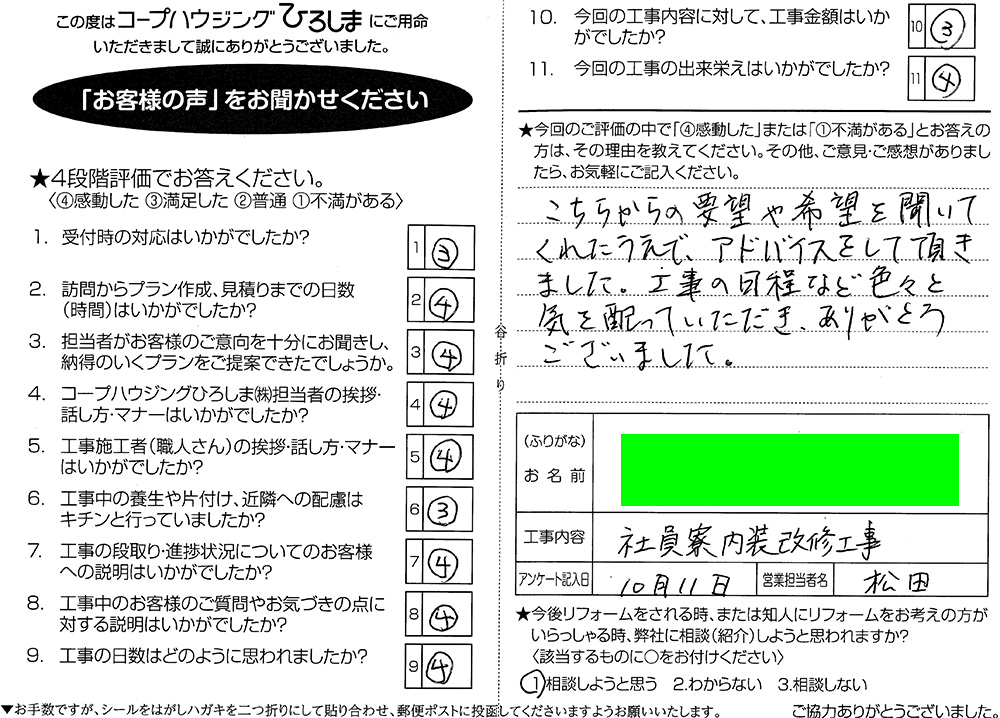 この度はコープハウジングひろしまにご用命
いただきまして誠にありがとうございました。
「お客様の声」をお聞かせください
★4段階評価でお答えください。
〈④感動した ③満足した ②普通 ①不満がある〉
1. 受付時の対応はいかがでしたか?
1 ③
2. 訪問からプラン作成、見積りまでの日数
(時間)はいかがでしたか?
2 ④
3. 担当者がお客様のご意向を十分にお聞きし、
納得のいくプランをご提案できたでしょうか。
3 ④
4. コープハウジングひろしま㈱担当者の挨拶・
話し方・マナーはいかがでしたか?
4 ④
5. 工事施工者(職人さん)の挨拶・話し方・マナー
はいかがでしたか?
5 ④
6. 工事中の養生や片付け、近隣への配慮は
キチンと行っていましたか?
6 ③
7. 工事の段取り・進捗状況についてのお客様
への説明はいかがでしたか?
7 ④
8. 工事中のお客様のご質問やお気づきの点に
対する説明はいかがでしたか?
8 ④
9. 工事の日数はどのように思われましたか?
9 ④
▼お手数ですが、シールをはがしハガキを二つ折りにして貼り合わせ、郵便ポストに投函してくださいますようお願いいたします。
谷折り
10. 今回の工事内容に対して、工事金額はいか
がでしたか?
10 ③
11. 今回の工事の出来栄えはいかがでしたか?
11 ④
★今回のご評価の中で「④感動した」または「①不満がある」とお答えの
方は、その理由を教えてください。その他、ご意見・ご感想がありまし
たら、お気軽にご記入ください。
こちらからの要望や希望を聞いて
くれたうえで、アドバイスをして頂き
ました。工事の日程など色々と
気を配っていただき、ありがとう
ございました。
(ふりがな)
お名前
工事内容 社員寮内装改修工事
アンケート記入日 10月11日 営業担当者名 松田
★今後リフォームをされる時、または知人にリフォームをお考えの方が
いらっしゃる時、弊社に相談(紹介)しようと思われますか?
〈該当するものに○をお付けください〉
①相談しようと思う 2.わからない 3.相談しない
ご協力ありがとうございました。